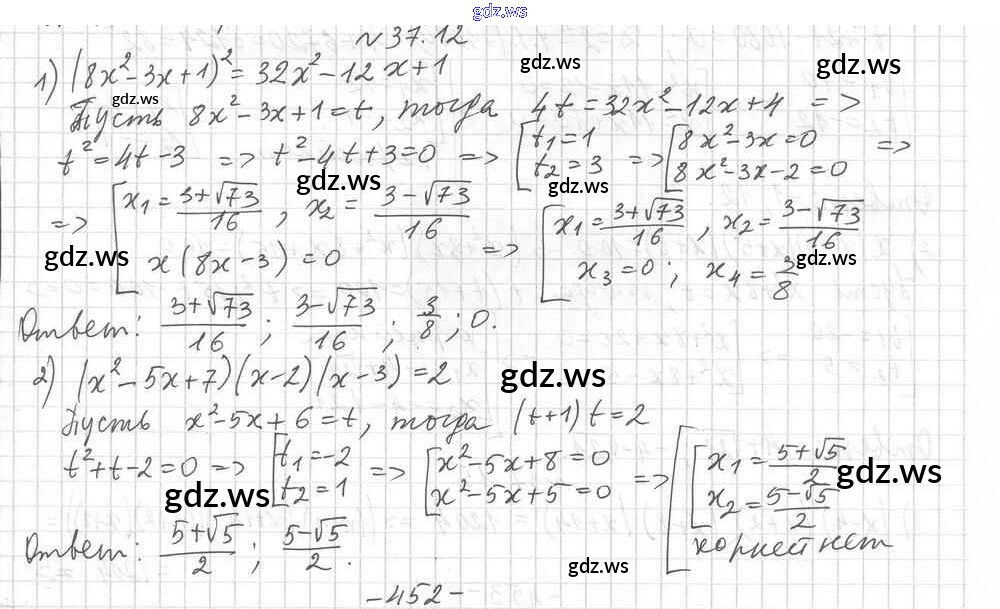 gdz.ws
№37.12
1) (8x² - 3x + 1)² = 32x² - 12x + 1
gdz.ws
gdz.ws
gdz.ws
Пусть 8x² - 3x + 1 = t, тогда 4t = 32x² - 12x + 4 =>
t² = 4t - 3 => t² - 4t + 3 = 0 => [t₁ = 1; t₂ = 3 => [8x² - 3x = 0; 8x² - 3x - 2 = 0 =>
gdz.ws
gdz.ws
=> [x₁ = (3+√73)/16, x₂ = (3-√73)/16; x(8x-3) = 0 => [x₁ = (3+√73)/16, x₂ = (3-√73)/16; x₃ = 0; x₄ = 3/8
gdz.ws
gdz.ws
Ответ: (3+√73)/16; (3-√73)/16; 3/8; 0.
2) (x² - 5x + 7)(x - 2)(x - 3) = 2
gdz.ws
Пусть x² - 5x + 6 = t, тогда (t+1)t = 2
t² + t - 2 = 0 => [t₁ = -2; t₂ = 1 => [x² - 5x + 8 = 0; x² - 5x + 5 = 0 => [[x₁ = (5+√5)/2; x₂ = (5-√5)/2; корней нет
gdz.ws
gdz.ws
Ответ: (5+√5)/2; (5-√5)/2.
gdz.ws
-452-